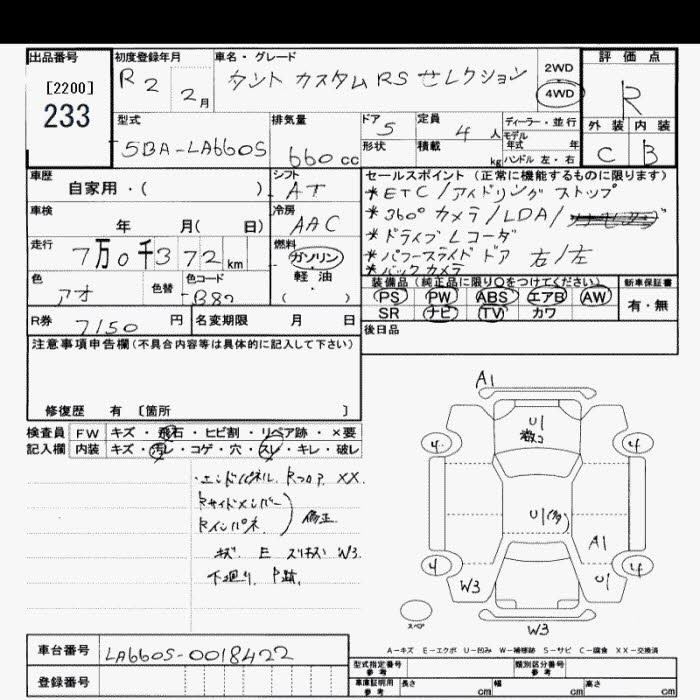 出品番号
[2200]
233
初度登録年月
R2 2月
車名・グレード
タント カスタム RS セレクション
2WD
4WD
評価点
R
外装 内装
C B
型式
5BA-LA660S
排気量
660cc
ドア 5
形状
定員 4人
積載 kg
ディーラー・並行
モデル年式 年
ハンドル 左・右
車歴
自家用・( )
シフト
AT
車検
年 月( 日)
冷房
AAC
走行
7万0千372km
燃料
ガソリン
軽・油
( )
色
アオ
色替
色コード
B82
R券 7150円
名変期限 月 日
セールスポイント(正常に機能するものに限ります)
*ETC/アイドリングストップ
*360°カメラ/LDA/
*ドライブレコーダ
*パワースライドドア 右/左
*バックカメラ
装備品(純正品に限り○をつけてください)
新車保証書
PS PW ABS エアB AW
SR ナビ TV カワ
有・無
後日品
注意事項申告欄(不具合内容等は具体的に記入して下さい)
修復歴 有 〔箇所 〕
検査員 FW キズ・飛石・ヒビ割・リペア跡・×要
記入欄 内装 キズ・汚レ・コゲ・穴・スレ・キレ・破レ
・エンドパネル. Rフロア XX.
Rサイドメンバー
Rインパネ
修正.
キズ. E スリキズ W3.
下廻り. P跡.
A1
U1
数コ
4
4
U1(多)
A1
4
4
W3
U1
スペア
W3
A-キズ E-エクボ U-凹み W-補修跡 S-サビ C-腐食 XX-交換済
車台番号
LA660S-0018422
登録番号
型式指定番号
参考
類別区分番号
参考
車庫証明用
参考
長さ cm 幅 cm 高さ cm